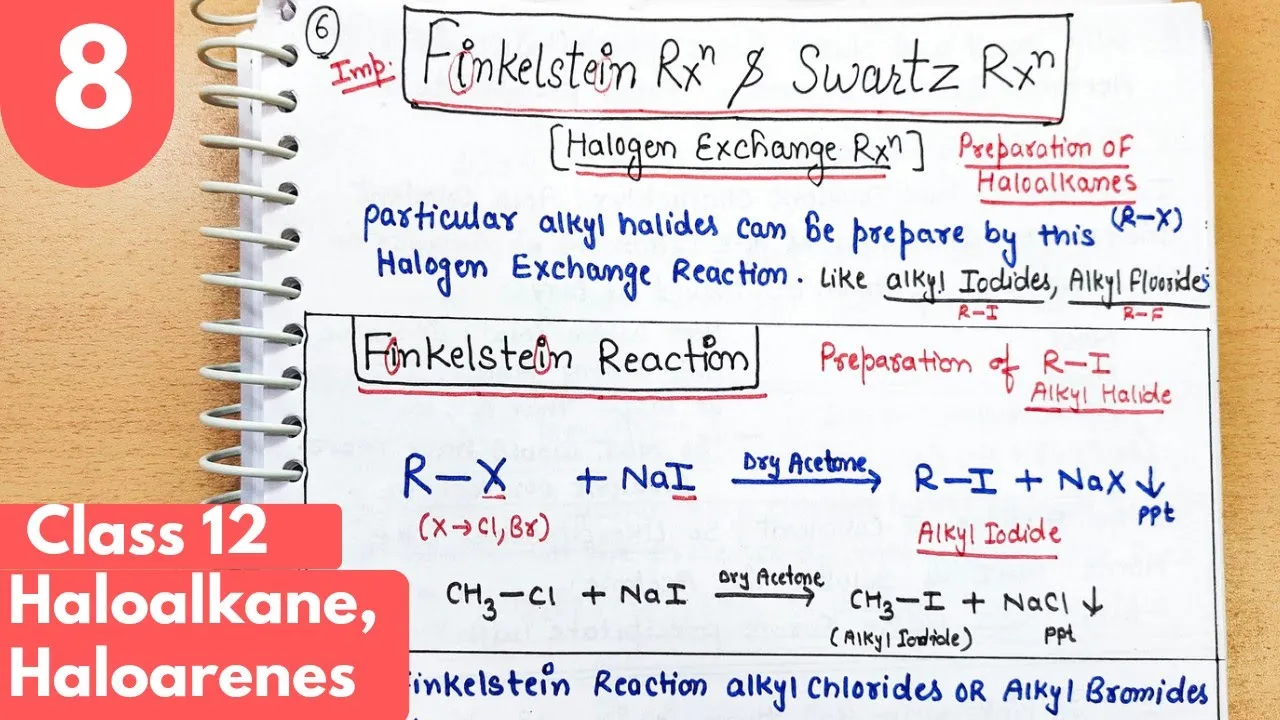 8
6
Imp.
Finkelstein Rxⁿ & Swartz Rxⁿ
[Halogen Exchange Rxⁿ]
Preparation of
Haloalkanes
particular alkyl halides can be prepare by this (R-X)
Halogen Exchange Reaction. Like alkyl Iodides, Alkyl Fluorides
R-I
R-F
Finkelstein Reaction
Preparation of R-I
Alkyl Halide
R-X + NaI Dry Acetone → R-I + NaX ↓
ppt
(X→Cl, Br)
Alkyl Iodide
CH₃-Cl + NaI Dry Acetone → CH₃-I + NaCl ↓
(Alkyl Iodide)
ppt
Finkelstein Reaction alkyl Chlorides OR Alkyl Bromides
Class 12
Haloalkane,
Haloarenes